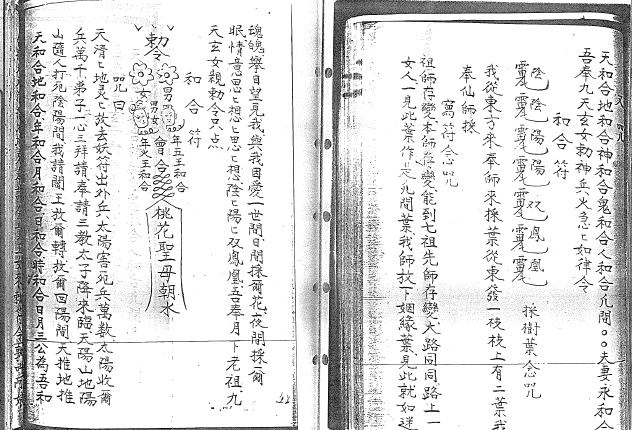 天和合地和合神和合鬼和合人和合凡間○○夫妻永和合
吾奉九天玄女勅神兵火急匕如律令
和合符
陰陰陽陽双鳳凰
採樹葉念咒
我從東方來奉師來採葉從東發一枝枝上有二葉我
奉仙師採
寫符念咒
祖師存變本師存變能到七祖先師存變大路同同路上一
女人一見此葉作是凡間葉我師放下姻緣葉見此就如迷
魂魄舉目望見我與我因愛一世間日間採爾花夜間採爾
眠情意思匕想匕思匕想陰匕陽匕双鳳凰吾奉月下老祖九
天玄女親勅令只点
和合符
勅令
男女
男女
年五王和合
年火王和合
會合
桃花聖母朝水
咒曰
天清匕地灵匕放去妖符出外兵太陽害死兵萬數太陽收爾
兵萬千弟子一心三拜請奉請三教太子降來臨天陽山地陽
山隨人打死陰陽間我請閻王放爾轉放爾回陽間天推地推
天和合地和合年和合月和合日和合時和合日月三公為吾和